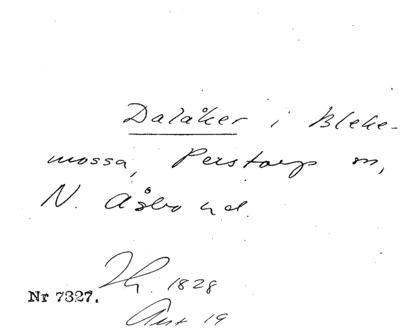 Dalåker i Bleke-
mossa, Perstorp sn,
N. Åsbo hd.
Nr 7327. 1828
19